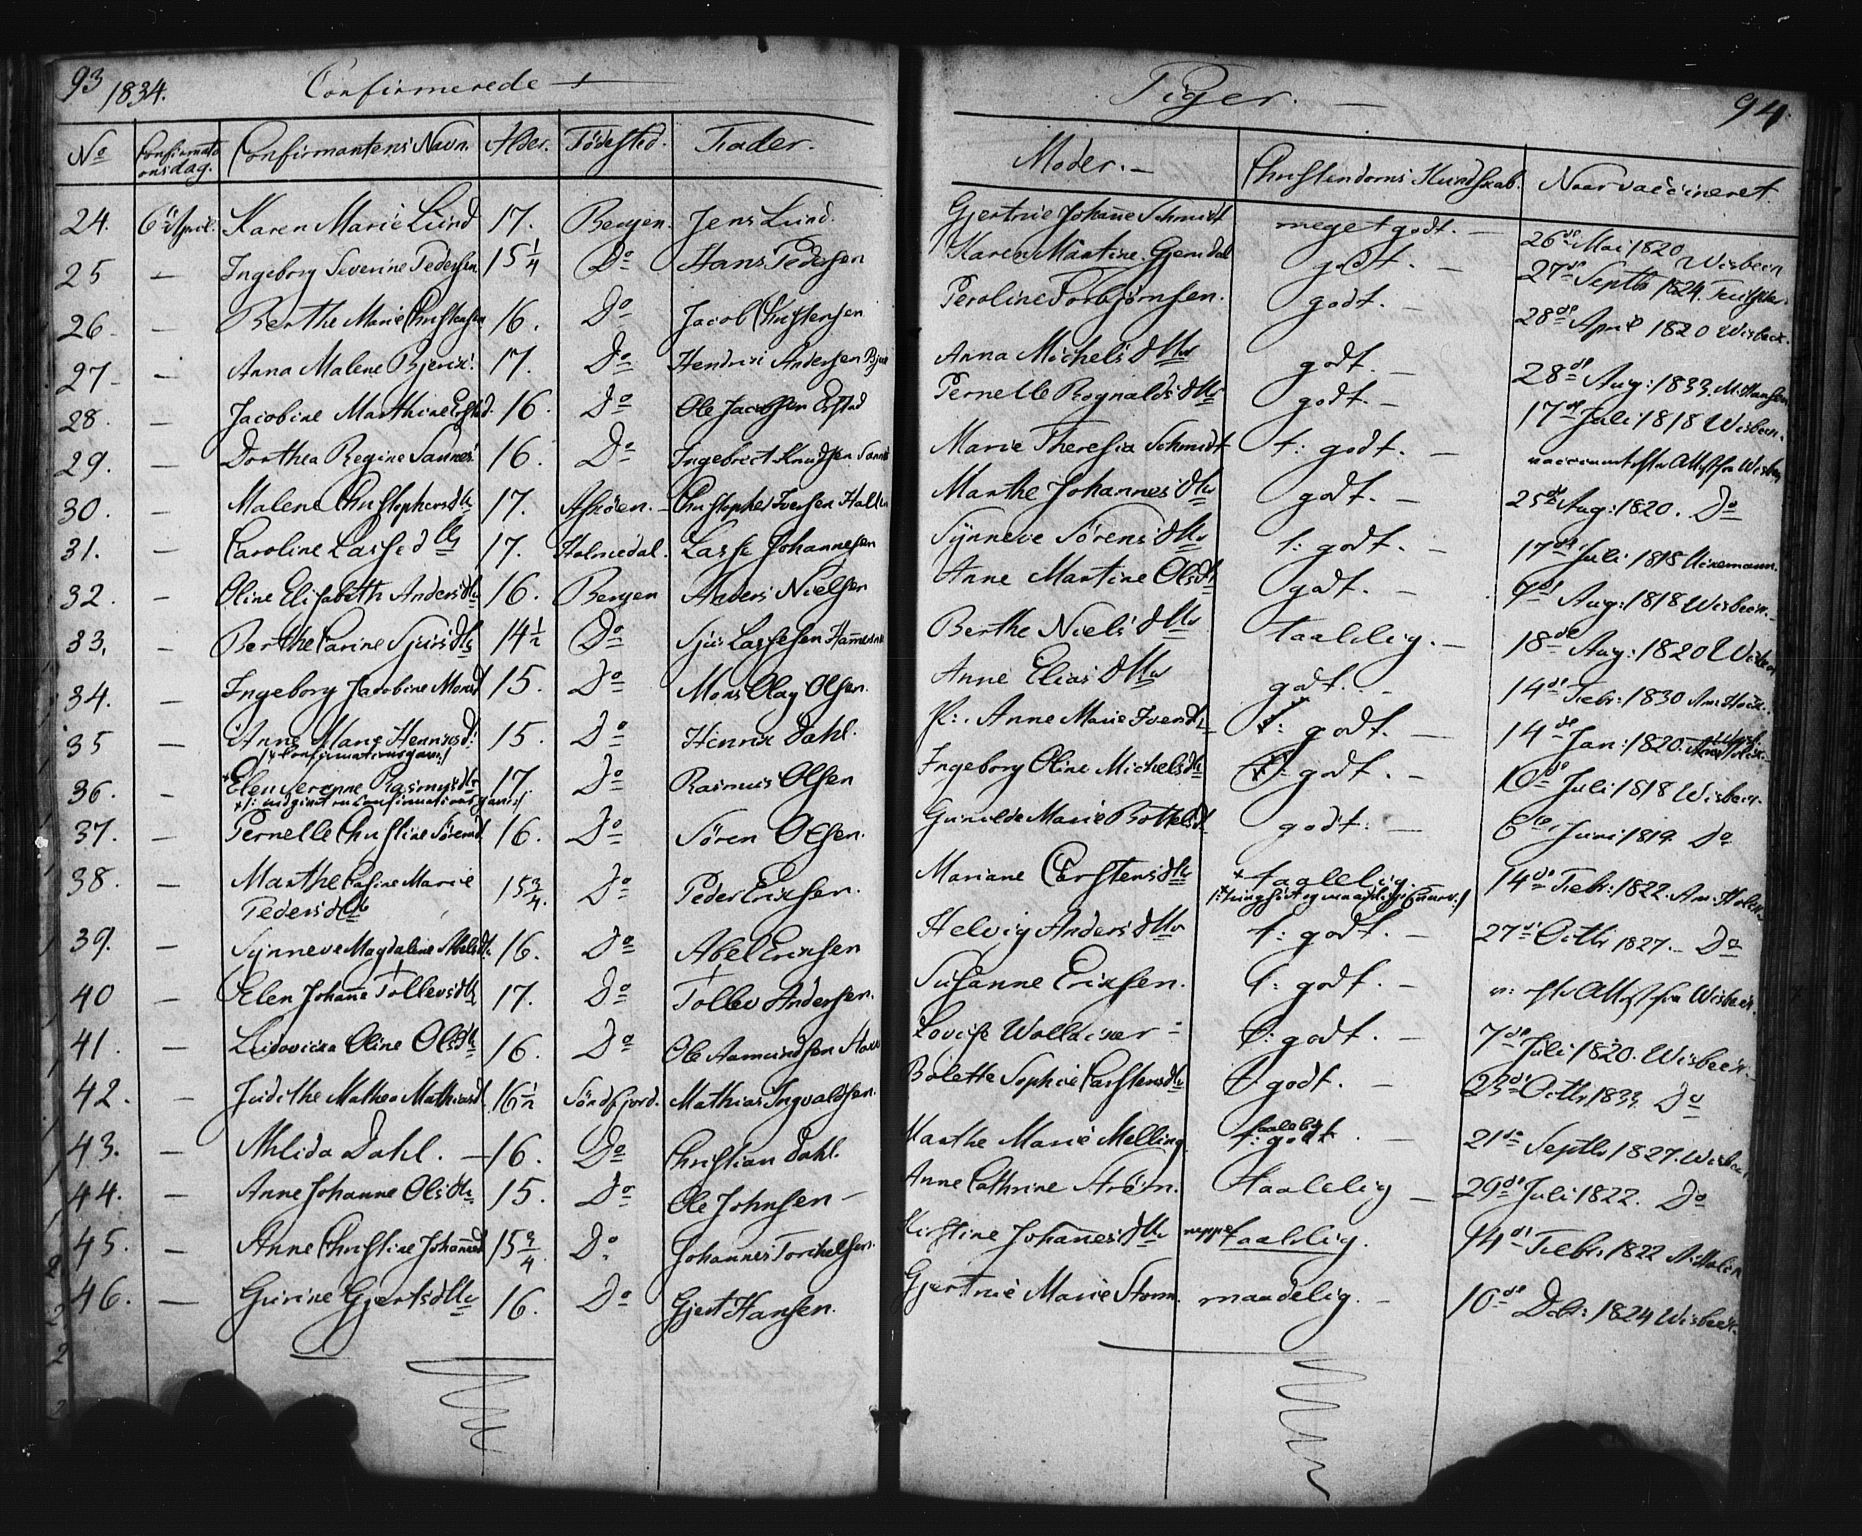 93 1834. Confirmerede Piger. 94
No Confirmationsdag. Confirmantens Navn. Alder. Födested. Fader. Moder. Christendoms Kundskab. Naar vaccineret.
24. 6te April. Karen Marie Lund 17. Bergen. Jens Lund. Gjertrue Johanne Schmidt meget godt. — 26de Mai 1820 Wisbech
25 — Ingeborg Severine Pedersen 15 1/4 Do Hans Pedersen Karen Martine Gjemdal godt. — 27de Septbr 1824.
26 — Berthe Marie Christensen 16. Do Jacob Christensen Peroline Torbjørnsen. godt. — 28de April 1820 Wisbech.
27 — Anna Malene Bjerck. 17. Do Hendrick Andersen Anna Michelsdtr godt. — 28de Aug: 1833 M. Hansen
28. — Jacobine Marthine Erstad. 16. Do Ole Jacobsen Erstad Pernelle Rognaldsdtr godt. — 17de Juli 1818 Wisbech.
29. — Dorthea Regine Sannes 16. Do Ingebrect Knudsen Marie Theresia Schmidt t: godt. — Attest fra Wisbech
30. — Malene Christophersdtr 17. Askøen. Christopher Iversen Marthe Johannesdtr godt. — 25de Aug: 1820. Do
31. — Caroline Lassedtr 17. Holmedal. Lasse Johannesen Synneve Sørensdtr t: godt. — 17de Juli 1818
32. — Oline Elisabeth Andersdtr 16. Bergen Anders Nielsen Anne Martine Olsdt godt. — 7de Aug: 1818 Wisbech.
33. — Berthe Carine Sjursdtr 14 1/2 Do Sjur Lassesen Berthe Nielsdtr taalelig. — 18de Aug: 1820 Wisbech
34. — Ingeborg Jacobine Monsd 15. Do Mons Olay Olsen. Anne Eliasdtr godt. — 14de Febr: 1830
35 — Anne Marie Henrichsd: 15. Do Hinrik Dahl. Anne Marie Iversdt t: godt. — 14de Jan: 1820.
36. — Elen Serenne Rasmusdtr 17. Do Rasmus Olsen Ingeborg Oline Michelsdtr t: godt. — 10de Juli 1818 Wisbech.
37. — Pernelle Christine Sørensd. 16. Do Sören Olsen. Gunilde Marie Bottelsd godt. — 6te Juni 1819. Do
38. — Marthe Casine Marie 15 3/4. Do Peder Ericksen. Mariane Carstensdtr + taalelig. 14de Febr: 1822.
Pedersdtr
39. — Synneve Magdalene Abelsdt. 16. Do Abel Ericksen Helvig Andersdtr t: godt. — 27de Octbr 1827. — Do
40 — Elen Johanne Tollevsdtr 17. Do Tollev Andersen. Susanne Ericksen. t: godt. — Attest fra Wisbech.
41. — Ludovicka Oline Olsdtr 16. Do Ole Aamundsen Lovise Wolkmar t: godt. — 7de Juli 1820. Wisbech.
42. — Judithe Mathea Mathiasd. 16 1/2 Söndfjord. Mathias Ingvaldsen. Bolette Sophie Carstensdtr t godt. — 23de Octbr 1833. Do
43. — Alida Dahl. — 16. Do Christian Dahl. Marthe Marie Melling. taalelig t: godt. — 21de Septbr 1827.
44. — Anne Johanne Olsdtr 15. Do Ole Johnsen — Anne Cathrine Ström. taalelig — 29de Juli 1822. Do
45. — Anne Christine Johannesd 15 3/4. Do. Johannes Torkelsen. Kirstine Johannesdtr neppe taalelig. 14de Febr: 1822
46. — Gurine Gjertsdtr 16. Do Gjert Hansen. Gjertrue Marie Storm. maadelig. — 10de Debr: 1824 Wisbech.